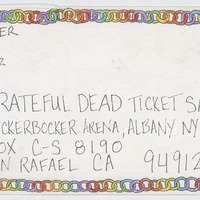 ER
2
RATEFUL DEAD TICKET SA
CKERBOCKER ARENA, ALBANY NY
OX C-S 8190
N RAFAEL CA 94912